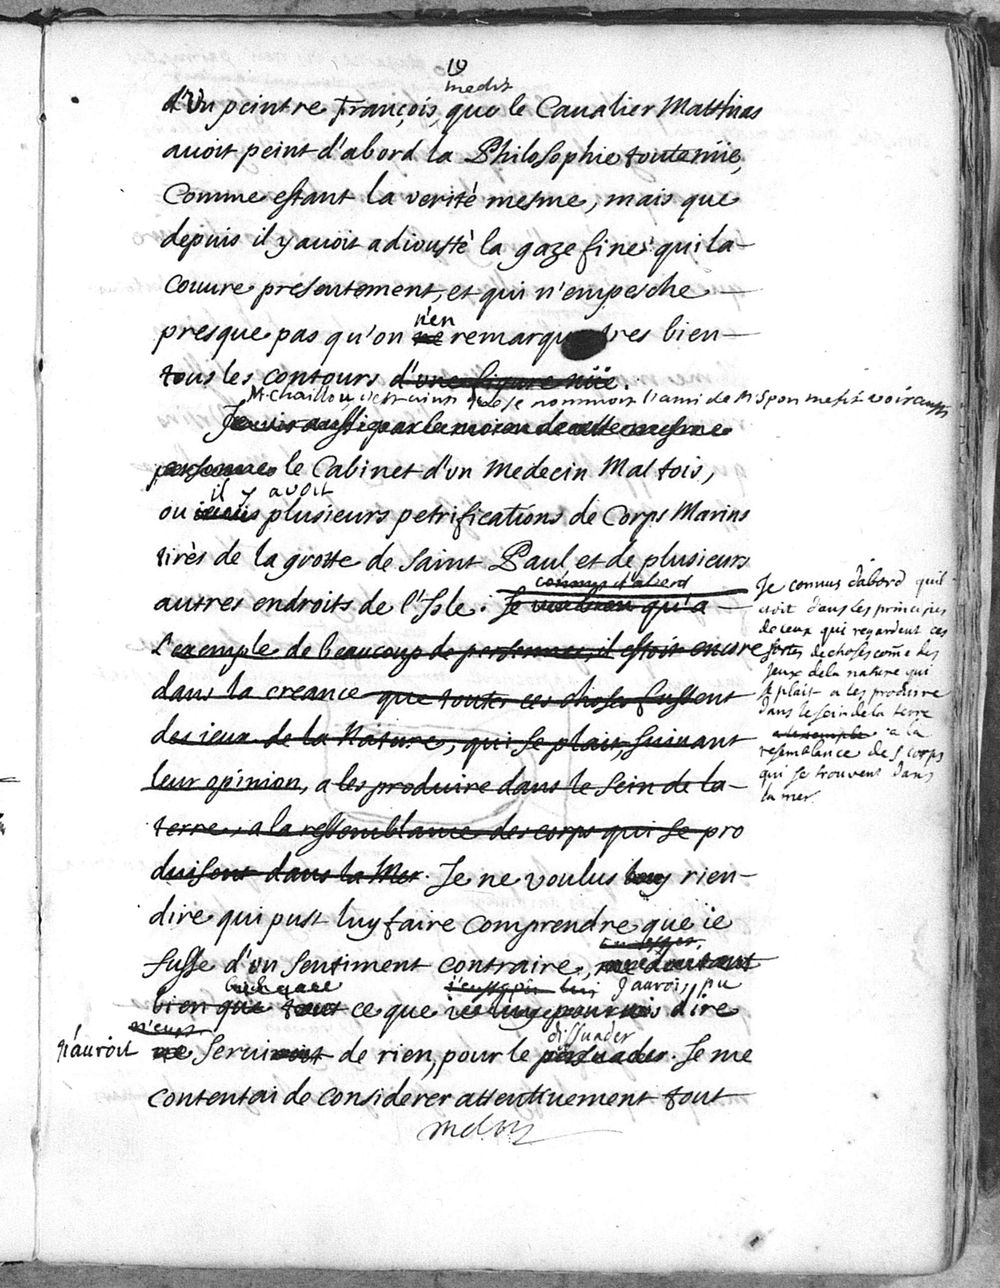 19
me dit
d'Vn peintre François, que le Caualier Matthias
auoit peint d'abord la Philosophie toute nüe,
Comme estant la verité mesme, mais que
depuis il y auoit adiousté la gaze fine qui la
Couure presentement, et qui n'empesche
n'en
presque pas qu'on ne remarque tres bien
tous les contours d'une figure nüe.
Mr Chaillou, c'est ainsi que se nommoit l'ami de Mr Spon me fit voir aussi
Je vis aussi par le moien de cette mesme
personne le Cabinet d'vn Medecin Maltois,
il y avoit
ou ie vis plusieurs petrifications de Corps Marins
tirés de la grotte de Saint Paul et de plusieurs
connus d'abord
autres endroits de l'Isle. Je vis bien qu'a
L'exemple de beaucoup de personnes, il estoit encore
dans la creance que toutes ces choses fussent
des ieux de la Nature, qui se plait, suiuant
leur opinion, a les produire dans le sein de la
terre, a la ressemblance des corps qui se pro
duisent dans la Mer. Je ne voulus luy rien
dire qui pust luy faire comprendre que ie
fusse d'vn sentiment contraire,
J'aurois pu
bien que tout ce que ie luy pourrois dire
n'eust
n'auroit ne serui de rien, pour le persuader. Je me
dissuader
contentai de considerer attentiuement tout
Je connus d'abord qu'il
etoit dans les principes
de ceux qui regardent ces
sortes de choses come des
Jeux de la nature qui
se plait a les produire
dans le sein de la terre
a l'exemple a la
resemblance des corps
qui se trouvent dans
la mer.